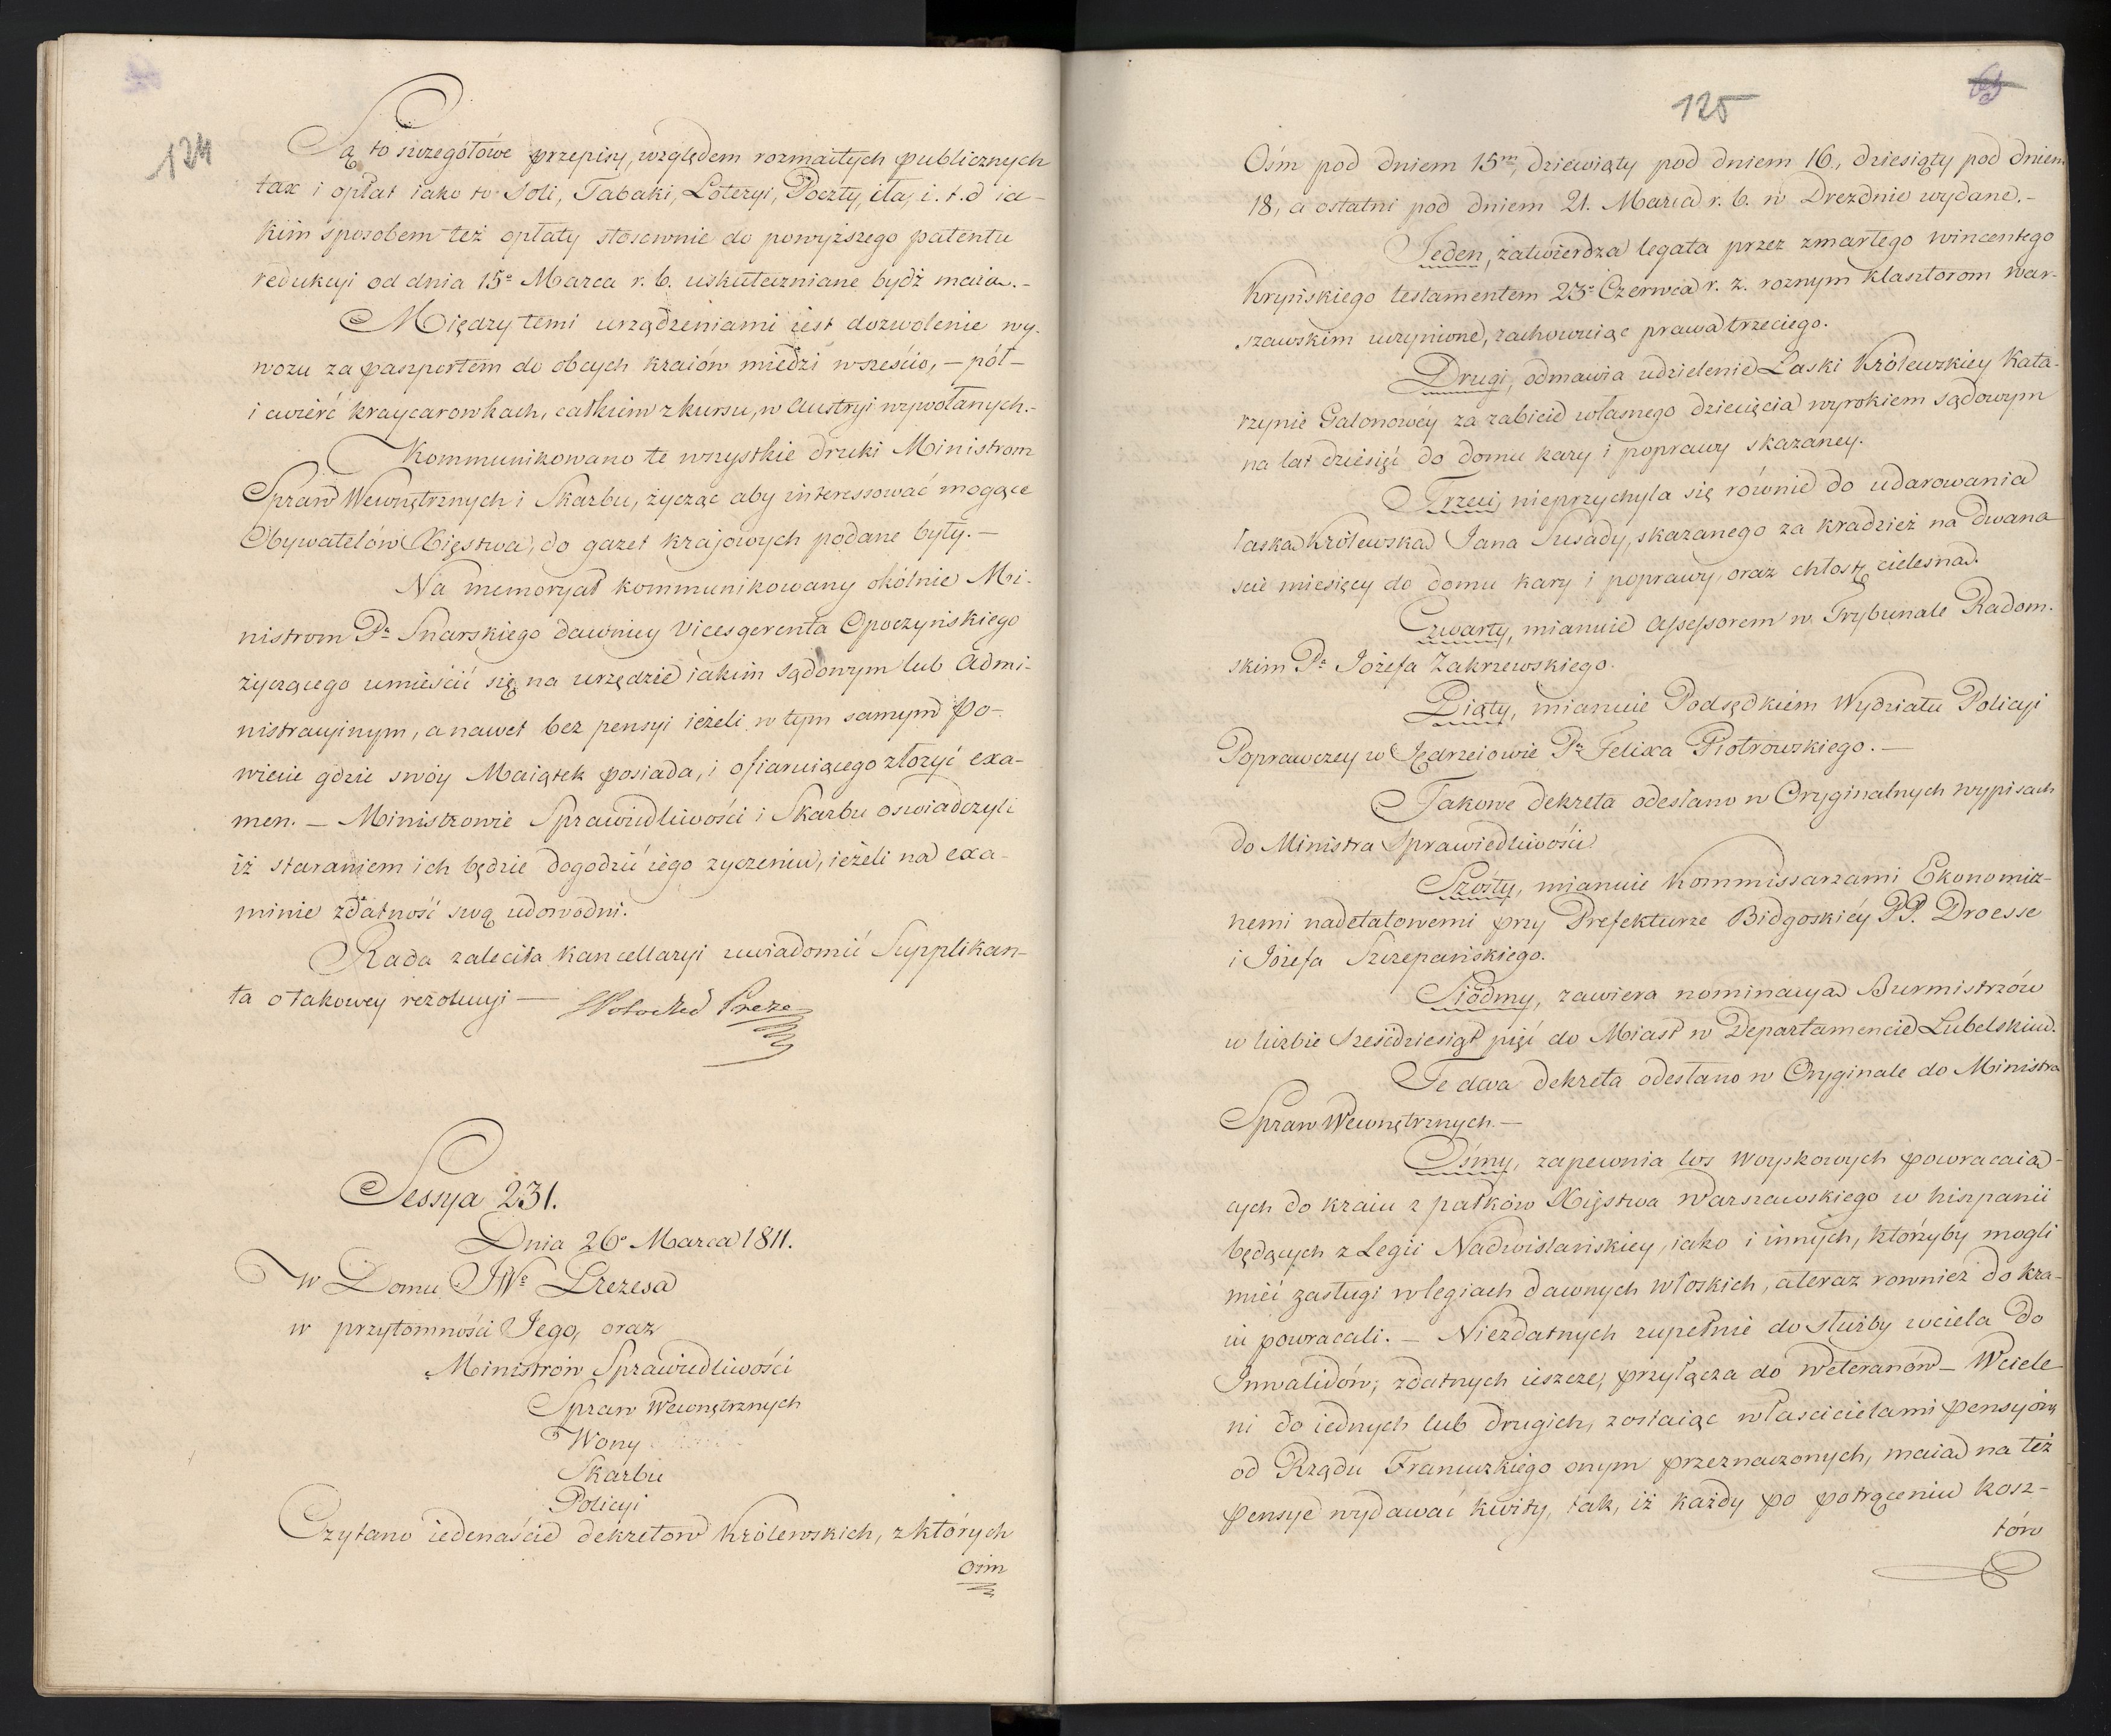 124
Są to szczegółowe przepisy, względem rozmaitych publicznych
tax i opłat iako to Soli, Tabaki, Loteryi, Poczty, cła, i. t. d ia-
kim sposobem też opłaty stosownie do powyższego patentu
redukcyi od dnia 15º Marca r. b. uskuteczniane bydź maią.-
Między temi urządzeniami iest dozwolenie wy-
wozu za paszportem do obcych kraiów miedzi w sześcio, - pół -
i ćwierć kraycarowkach, całkiem z kursu, w Austryi wywołanych.-
Kommunikowano te wszystkie druki Ministrom
Spraw Wewnętrznych i Skarbu, życząc aby interessować mogące
Obywatelów Xięstwa, do gazet krajowych podane były. -
Na memoryał kommunikowany okólnie Mi-
nistrom Pª Snarskiego dawniey Vicesgerenta Opoczyńskiego
życzącego umieścić się na urzędzie iakim sądowym lub Admi-
nistracyinym, a nawet bez pensyi ieżeli w tym samym Po-
wiecie gdzie swóy Maiątek posiada, i ofiaruiącego złożyć exa-
men. - Ministrowie Sprawiedliwości i Skarbu oswiadczyli
iż staraniem ich będzie dogodzić iego zyczeniu, ieżeli na exa-
minie zdatność swą udowodni.
Rada zaleciła kancellaryi uwiadomić Supplikan-
ta o takowey rezolucyi —
Sessya 231.
Dnia 26º Marca 1811.
w Domu JWº Prezesa
w przytomności Jego, oraz
Ministrów Sprawiedliwości
Spraw Wewnętrznych
Wony
Skarbu
Policyi
Czytano iedenaście dekretow Królewskich, z których
ośm
125
Ośm pod dniem 15m, dziewiąty pod dniem 16., dziesiąty pod dniem
18, a ostatni pod dniem 21. Marca r. b. w Dreznie wydane.-
Jeden, zatwierdza legata przez zmarłego wincentego
Krypskiego testamentem 23º Czerwca r. z. roznym klasztorom war-
szawskim uczynione, zachowuiąc prawa trzeciego.
Drugi, odmawia udzielenie Łaski Królewskiey Kata-
rzynie Galonowéy za zabicie własnego dziecięcia wyrokiem sądowym
na lat dziesięć do domu kary i poprawy skazaney.
Trzeci, nieprzychyla się równie do udarowania
łaską Królewską Jana Susady, skazanego za kradzież na dwana
scie miesięcy do domu kary i poprawy, oraz chłostę cielesną.
Czwarty, mianuie Assessorem w Trybunale Radom-
skim Pª Józefa Zakrzewskiego.
Piąty, mianuie Podsędkiem Wydziału Policyi
Poprawczey w Jędrzeiowie Pª Felixa Piotrowskiego. —
Takowe dekreta odesłano w Oryginalnych wypisach
do Ministra Sprawiedliwości
Szósty, mianuie Kommissarzami Ekonomicz-
nemi nadetatowemi przy Prefekturze Bidgoskiéy PP. Droesse
i Józefa Szczepańskiego.
Siódmy, zawiera nominacyą Burmistrzów
w liczbie sześćdziesiąt pięć do Miast w Departamencie Lubelskim.
Te dwa dekreta odesłano w Oryginale do Ministra
Spraw Wewnętrznych. —
Ósmy, zapewnia los woyskowych powracaią-
cych do kraiu z pułków Xięstwa Warszawskiego w hiszpanii
będących z Legii Nadwislańskiey, iako i innych, którzyby mogli
mieć zasługi w legiach dawnych włoskich, a teraz rownież do kra-
iu powracali. - Niezdatnych zupełnie do służby wciela do
Inwalidów; zdatnych ieszcze, przyłącza do weteranów - Wciele
ni do iednych lub drugich, zostaiąc właścicielami pensyów
od Rządu Francuzkiego onym przeznaczonych, maią na też
pensye wydawać kwity, tak, iż każdy po potrąceniu kosz-
tów